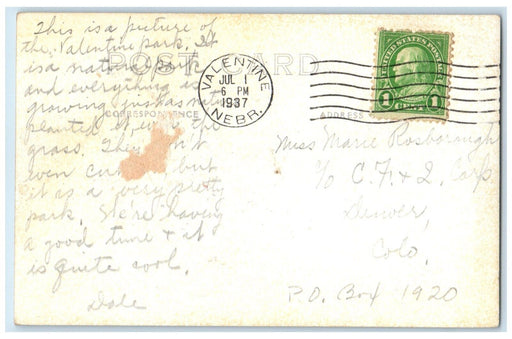 This is a picture of
the Valentine park. It
is a nature park
and everything is
growing just as nature
planted it even the
grass. They
even but
it is a very pretty
park. We're having
a good time & it
is quite cool.
Dale
POST CARD
CORRESPONDENCE
ADDRESS
VALENTINE
JUL 1
6 PM
1937
NEBR.
UNITED STATES POSTAGE
1 CENT 1
Miss Marie Rosborough
% C. F. & I. Corp
Denver,
Colo.
P.O. Box 1920